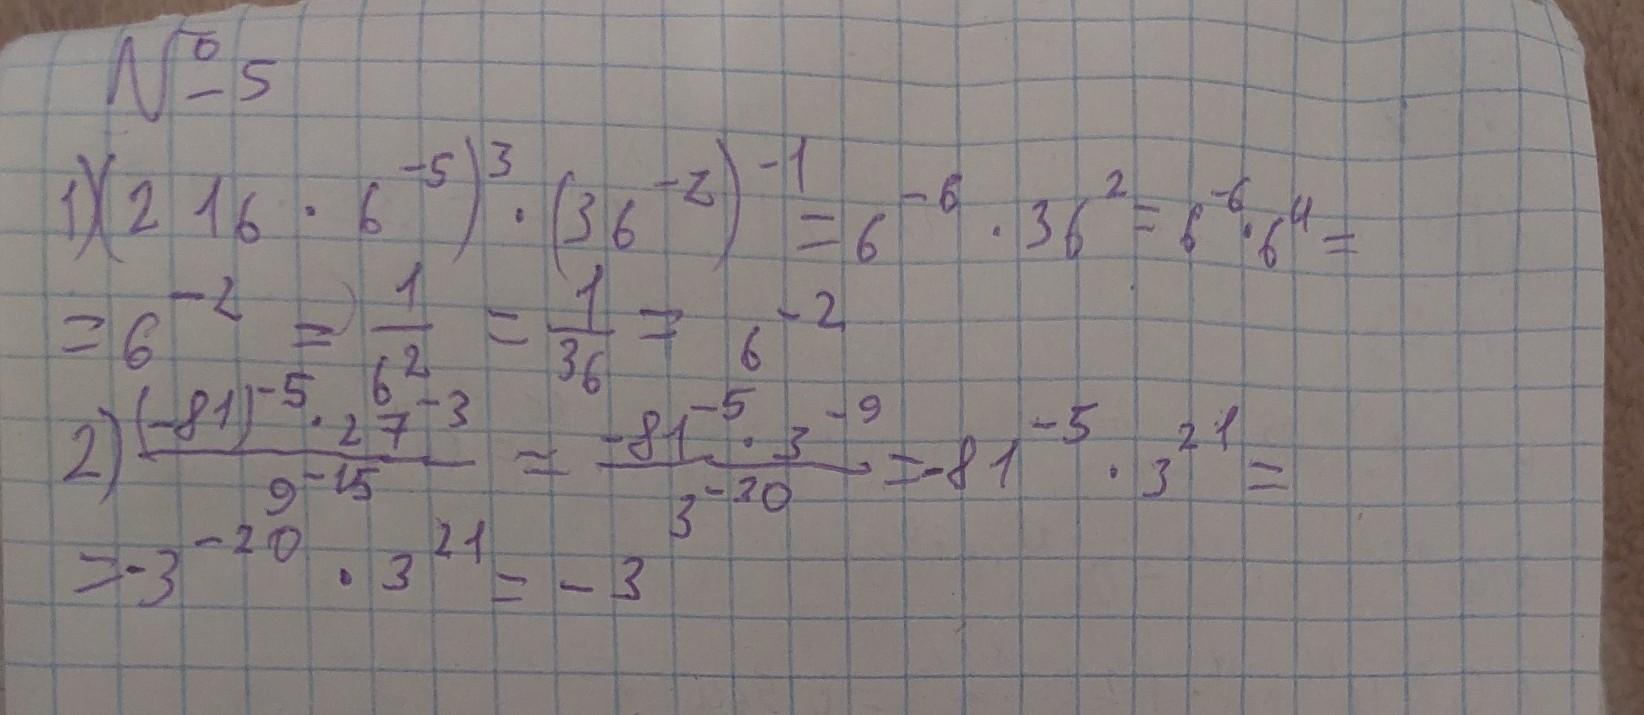 № 5
1) (216 · 6^{-5})^3 · (36^{-2})^{-1} = 6^{-6} · 36^2 = 6^{-6} · 6^4 =
= 6^{-2} = \frac{1}{6^2} = \frac{1}{36} = 6^{-2}
2) \frac{(-81)^{-5} · 27^{-3}}{9^{-15}} = \frac{-81^{-5} · 3^{-9}}{3^{-30}} = -81^{-5} · 3^{21} =
= -3^{-20} · 3^{21} = -3